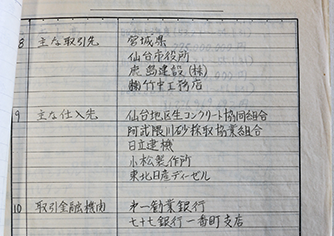 8 主な取引先 宮城県
仙台市役所
鹿島建設(株)
㈱竹中工務店
9 主な仕入先 仙台地区生コンクリート協同組合
阿武隈川砂採取協業組合
日立建機
小松製作所
東北日産ディーゼル
10 取引金融機関 第一勧業銀行
七十七銀行一番町支店